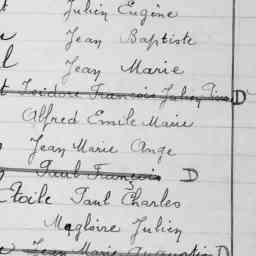 Julien Eugène
Jean Baptiste
Jean Marie
Isidore François Julien Pierre D
Alfred Emile Marie
Jean Marie Ange
Paul François D
Etoile Paul Charles
Magloire Julien
Jean Marie Augustin D